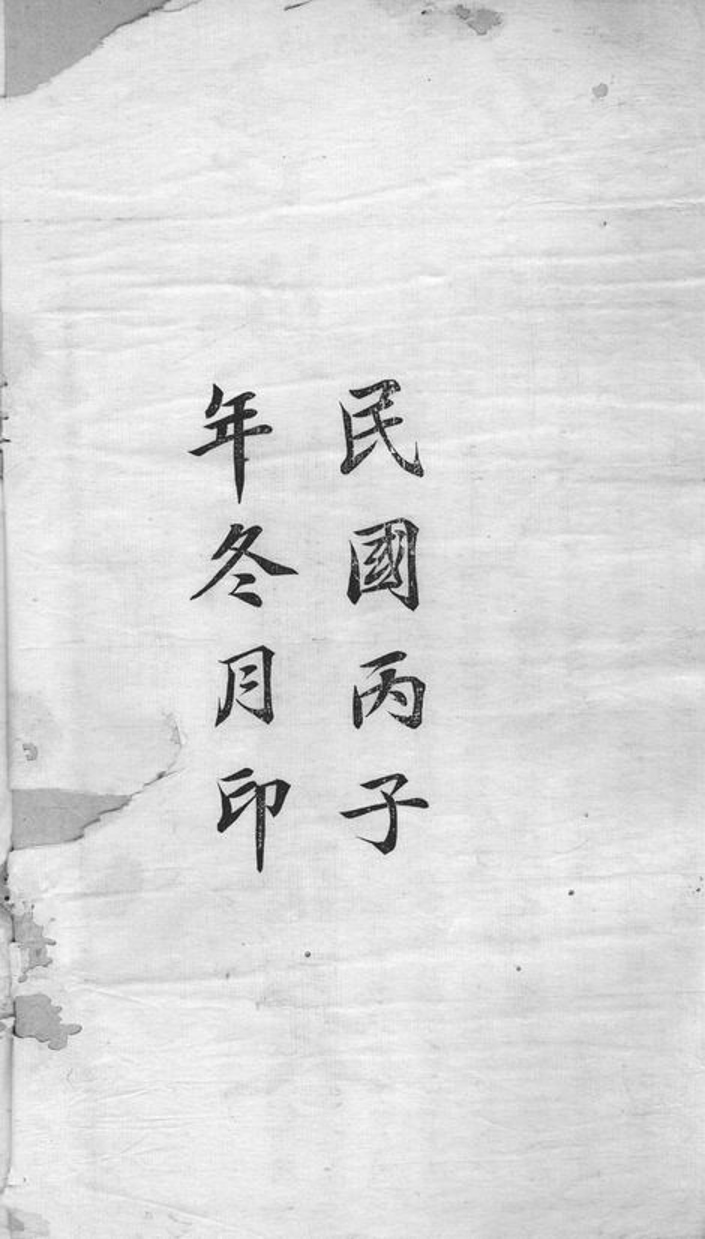 民國丙子
年冬月印